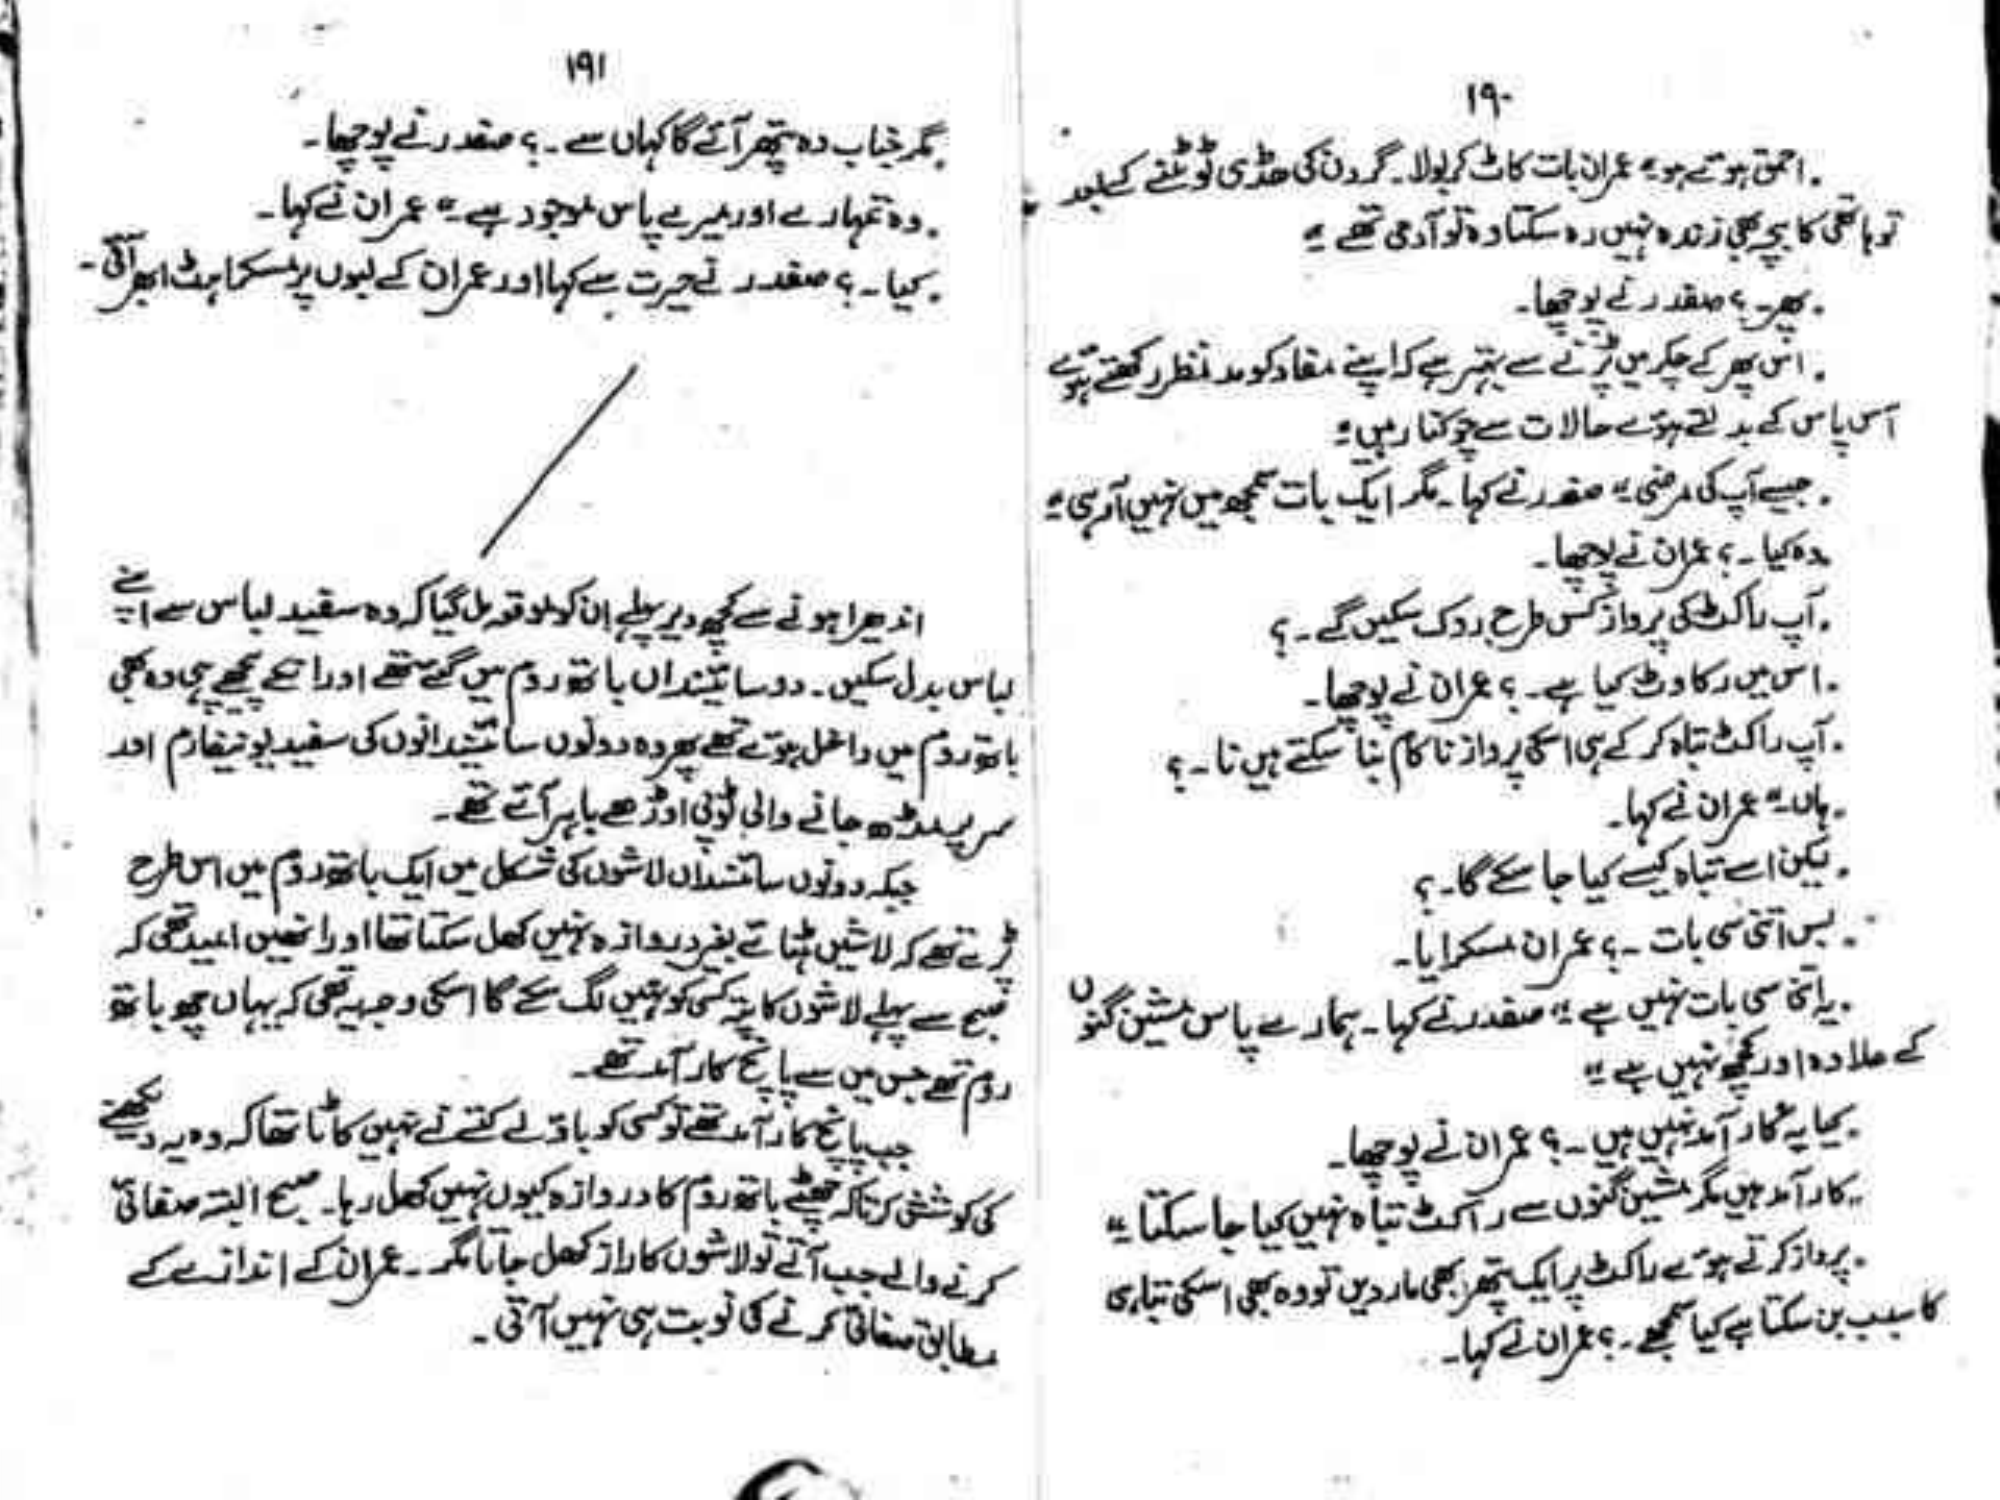 ۱۹۰
. احمق ہوتے ہو۔" عمران بات کاٹ کر بولا۔ گردن کی ھڈی ٹوٹنے کے بعد
تو ہاتھی کا بچہ بھی زندہ نہیں رہ سکتا وہ تو آدمی تھے۔"
. پھر۔ ؟ صفدر نے پوچھا۔
. اس پھر کے چکر میں پڑنے سے بہتر ہے کہ اپنے مفاد کو مد نظر رکھتے ہوئے
آس پاس کے بدلتے ہوئے حالات سے چوکنا رہیں۔"
. جیسے آپ کی مرضی۔" صفدر نے کہا۔ مگر ایک بات سمجھ میں نہیں آ رہی۔"
. وہ کیا۔ ؟ عمران نے پوچھا۔
. آپ راکٹ کی پرواز کس طرح روک سکیں گے۔ ؟
. اس میں رکاوٹ کیا ہے۔ ؟ عمران نے پوچھا۔
. آپ راکٹ تباہ کر کے ہی اسکی پرواز ناکام بنا سکتے ہیں نا۔ ؟
. ہاں۔" عمران نے کہا۔
. لیکن اسے تباہ کیسے کیا جا سکے گا۔ ؟
. بس اتنی سی بات۔ ؟ عمران مسکرایا۔
. یہ اتنی سی بات نہیں ہے۔" صفدر نے کہا۔ ہمارے پاس مشین گنوں
کے علاوہ اور کچھ نہیں ہے۔"
. کیا یہ کار آمد نہیں ہیں۔ ؟ عمران نے پوچھا۔
. کار آمد ہیں مگر مشین گنوں سے راکٹ تباہ نہیں کیا جا سکتا۔"
. پرواز کرتے ہوئے راکٹ پر ایک پتھر بھی مار دیں تو وہ بھی اسکی تباہی
کا سبب بن سکتا ہے کیا سمجھے۔ ؟ عمران نے کہا۔
۱۹۱
. مگر جناب وہ پتھر آئے گا کہاں سے۔ ؟ صفدر نے پوچھا۔
. وہ تمہارے اور میرے پاس موجود ہے۔" عمران نے کہا۔
. کیا۔ ؟ صفدر نے حیرت سے کہا اور عمران کے لبوں پر مسکراہٹ ابھر آئی۔
اندھیرا ہونے سے کچھ دیر پہلے ان کو موقعہ مل گیا کہ وہ سفید لباس سے اپنے
لباس بدل سکیں۔ دو سائنسداں باتھ روم میں گئے تھے اور انکے پیچھے ہی وہ بھی
باتھ روم میں داخل ہوئے تھے پھر وہ دونوں سائنسدانوں کی سفید یونیفارم اور
سر پر منڈھ جانے والی ٹوپی اوڑھے باہر آئے تھے۔
جبکہ دونوں سائنسداں لاشوں کی شکل میں ایک باتھ روم میں اس طرح
پڑے تھے کہ لاشیں ہٹائے بغیر دروازہ نہیں کھل سکتا تھا اور انھیں امید تھی کہ
صبح سے پہلے لاشوں کا پتہ کسی کو نہیں لگ سکے گا اسکی وجہ یہ تھی کہ یہاں چھ باتھ
روم تھے جس میں سے پانچ کار آمد تھے۔
جب پانچ کار آمد تھے تو کسی کو باؤلے کتے نے نہیں کاٹا تھا کہ وہ یہ دیکھنے
کی کوشش کرتا کہ چھٹے باتھ روم کا دروازہ کیوں نہیں کھل رہا۔ صبح البتہ صفائی
کرنے والے جب آتے تو لاشوں کا راز کھل جاتا مگر۔ عمران کے اندازے کے
مطابق صفائی کرنے کی نوبت ہی نہیں آتی۔